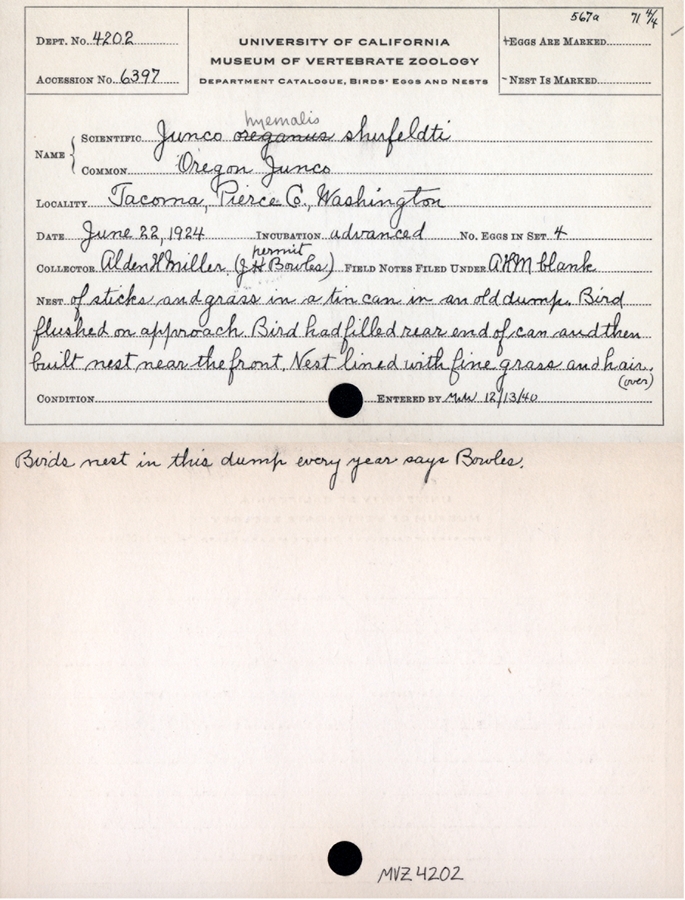 567a 71 4/4
DEPT. NO. 4202
UNIVERSITY OF CALIFORNIA
+EGGS ARE MARKED
MUSEUM OF VERTEBRATE ZOOLOGY
ACCESSION NO. 6397
DEPARTMENT CATALOGUE, BIRDS' EGGS AND NESTS
~NEST IS MARKED
hyemalis
NAME { SCIENTIFIC Junco oreganus shufeldti
COMMON Oregon Junco
LOCALITY Tacoma, Pierce Co., Washington
DATE June 22, 1924 INCUBATION advanced NO. EGGS IN SET 4
permit
COLLECTOR Alden H Miller (J H Bowles) FIELD NOTES FILED UNDER AHM blank
NEST of sticks and grass in a tin can in an old dump. Bird
flushed on approach. Bird had filled rear end of can and then
built nest near the front. Nest lined with fine grass and hair.
(over)
CONDITION ENTERED BY MWW 12/13/40
Birds nest in this dump every year says Bowles.
MVZ 4202